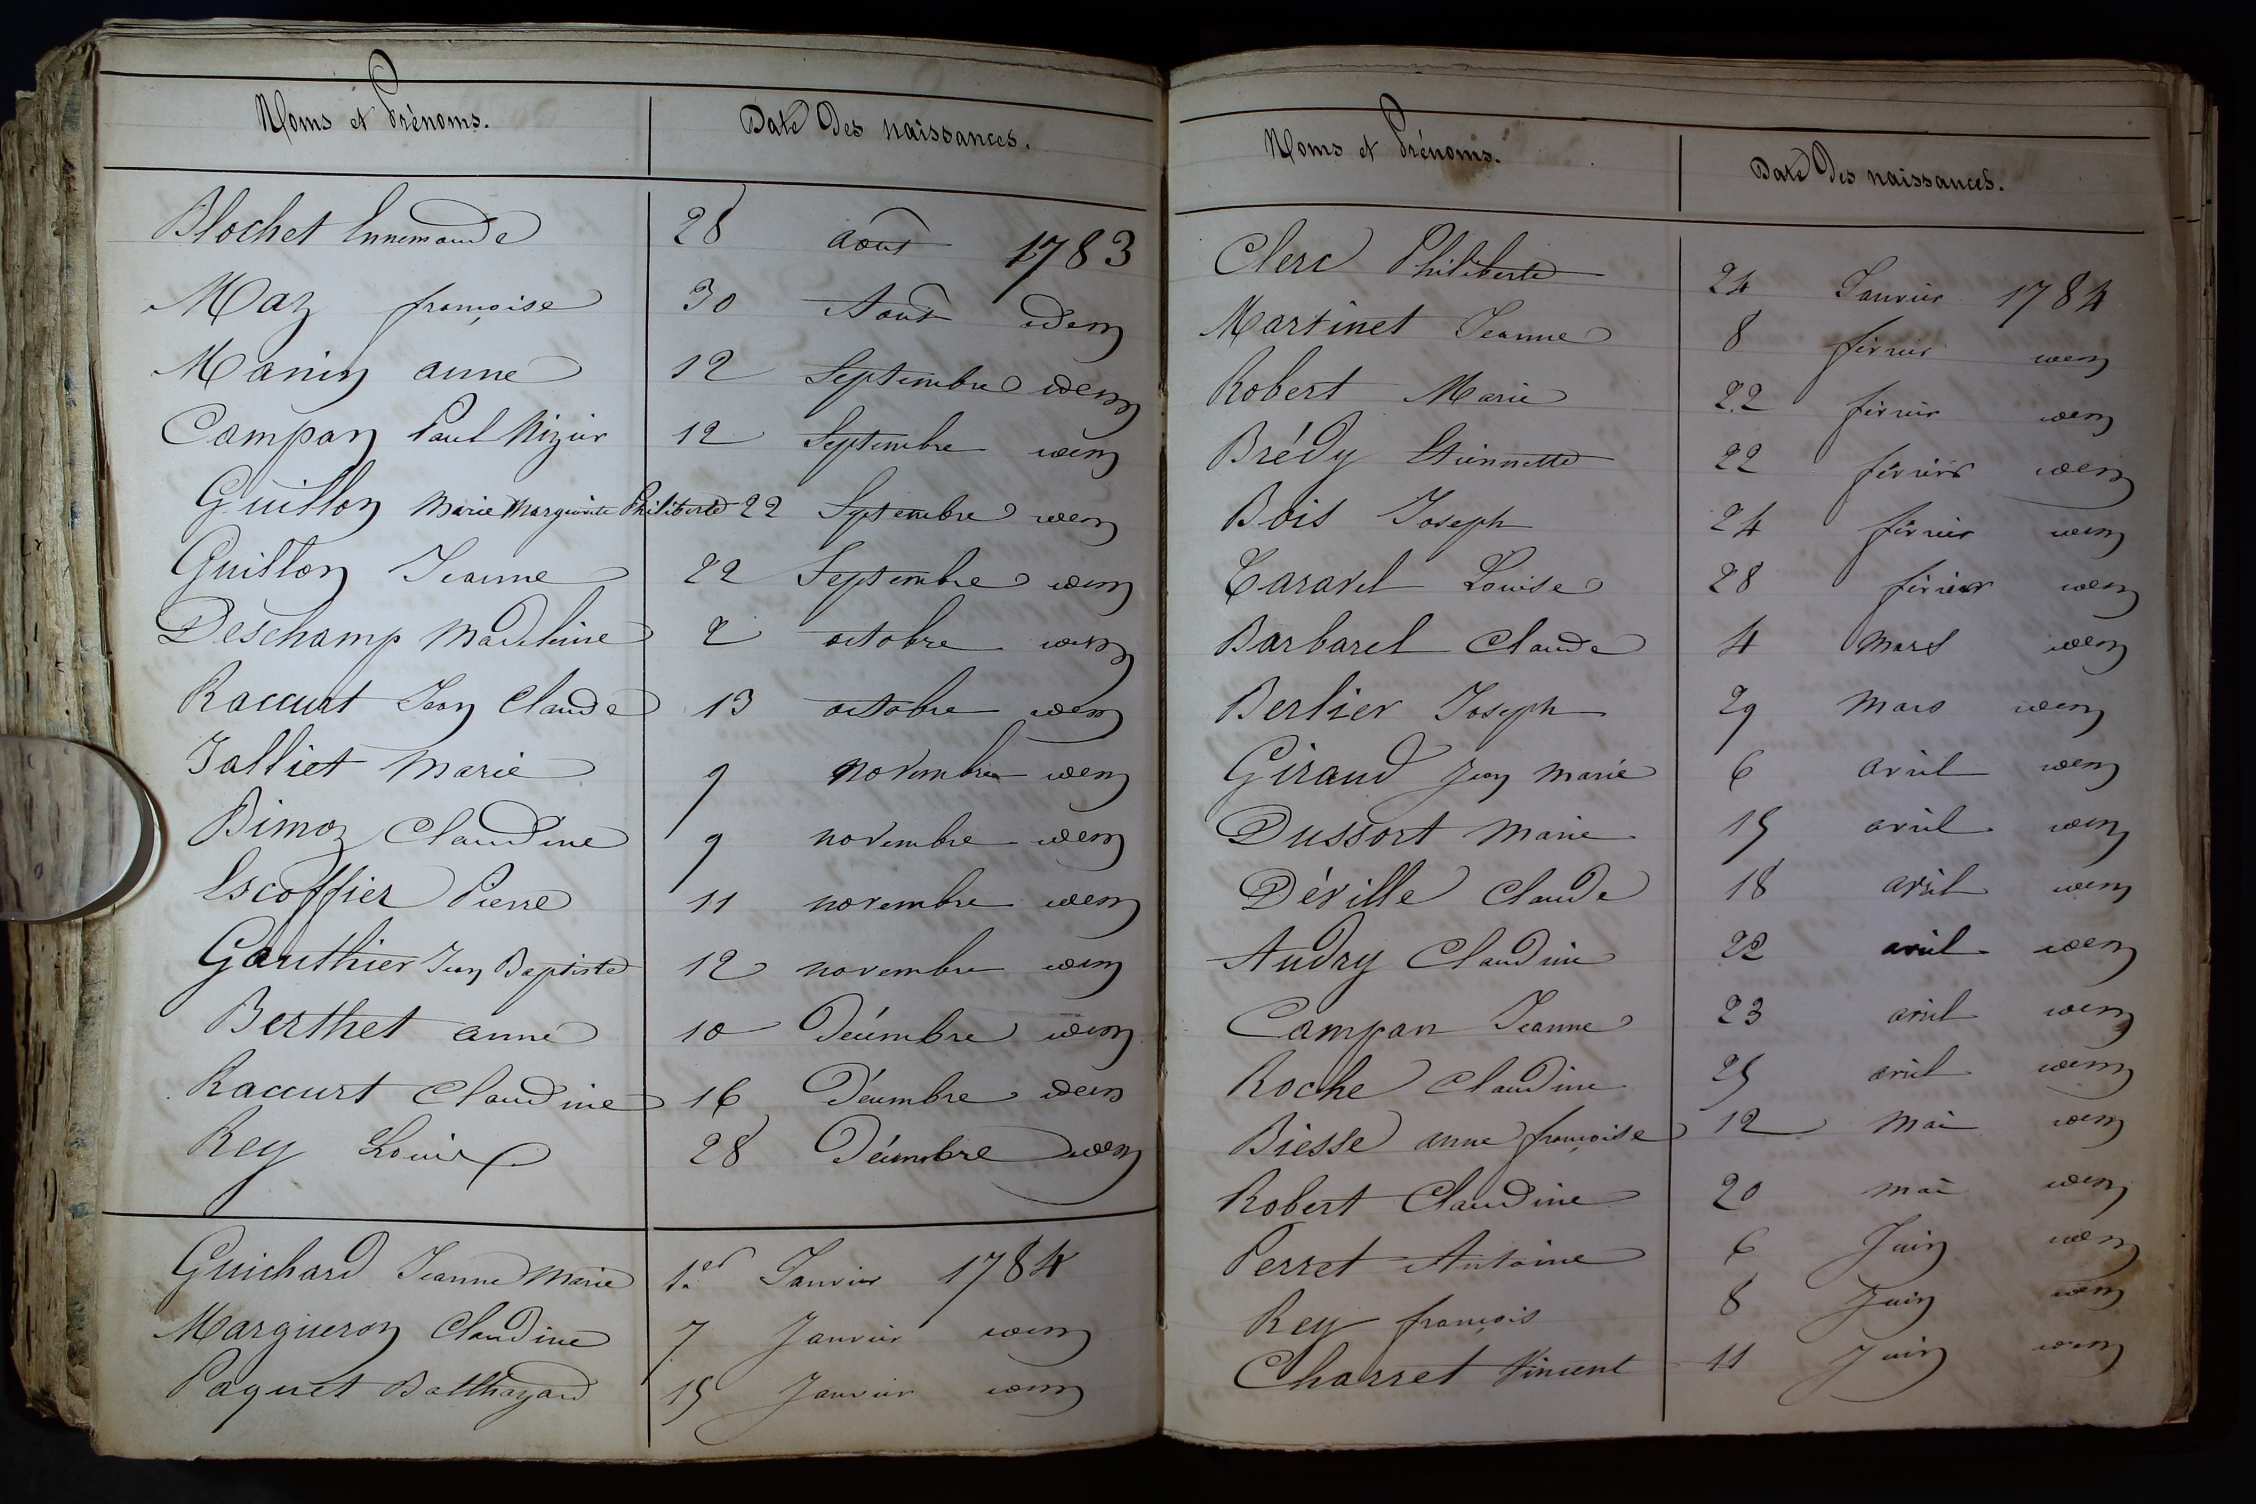 Noms et Prénoms. Date Des naissances.
Blochet Ennemonde 28 août 1783
Maz françoise 30 Août idem
Manin anne 12 Septembre idem
Campan Paul Nizier 12 Septembre idem
Guillon Marie Marguerite Philiberte 22 Septembre idem
Guillon Jeanne 22 Septembre idem
Deschamp Madeleine 2 octobre idem
Raccurt Jean Claude 13 octobre idem
Jalliet Marie 9 novembre idem
Bimoz Claudine 9 novembre idem
Escoffier Pierre 11 novembre idem
Gauthier Jean Baptiste 12 novembre idem
Berthet anne 10 Décembre idem
Raccurt Claudine 16 Décembre idem
Rey Louis 28 Décembre idem
Guichard Jeanne Marie 1er Janvier 1784
Margueron Claudine 7 Janvier idem
Paquet Balthazard 15 Janvier idem
Noms et Prénoms. Date Des naissances.
Clerc Philiberte 24 Janvier 1784
Martinet Jeanne 8 février idem
Robert Marie 22 février idem
Brédy Etiennette 22 février idem
Bois Joseph 24 février idem
Caravel Louise 28 février idem
Barbarel Claude 4 mars idem
Berlier Joseph 29 mars idem
Giraud Jean Marie 6 avril idem
Dussort Marie 15 avril idem
Déville Claude 18 avril idem
Audry Claudine 22 avril idem
Campan Jeanne 23 avril idem
Roche Claudine 25 avril idem
Biesse anne françoise 12 mai idem
Robert Claudine 20 mai idem
Perret Antoine 6 Juin idem
Rey françois 8 Juin idem
Charret Vincent 11 Juin idem